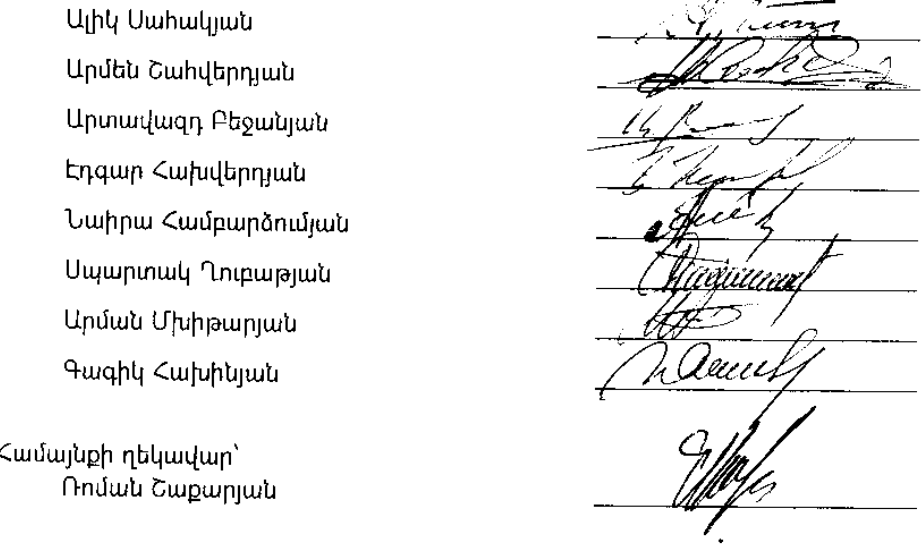 Ալիկ Սահակյան
Արմեն Շահվերդյան
Արտավազդ Բեջանյան
Էդգար Հախվերդյան
Նաիրա Համբարձումյան
Սպարտակ Ղուբաթյան
Արման Մխիթարյան
Գագիկ Հախինյան
Համայնքի ղեկավար՝
Ռոման Շաքարյան